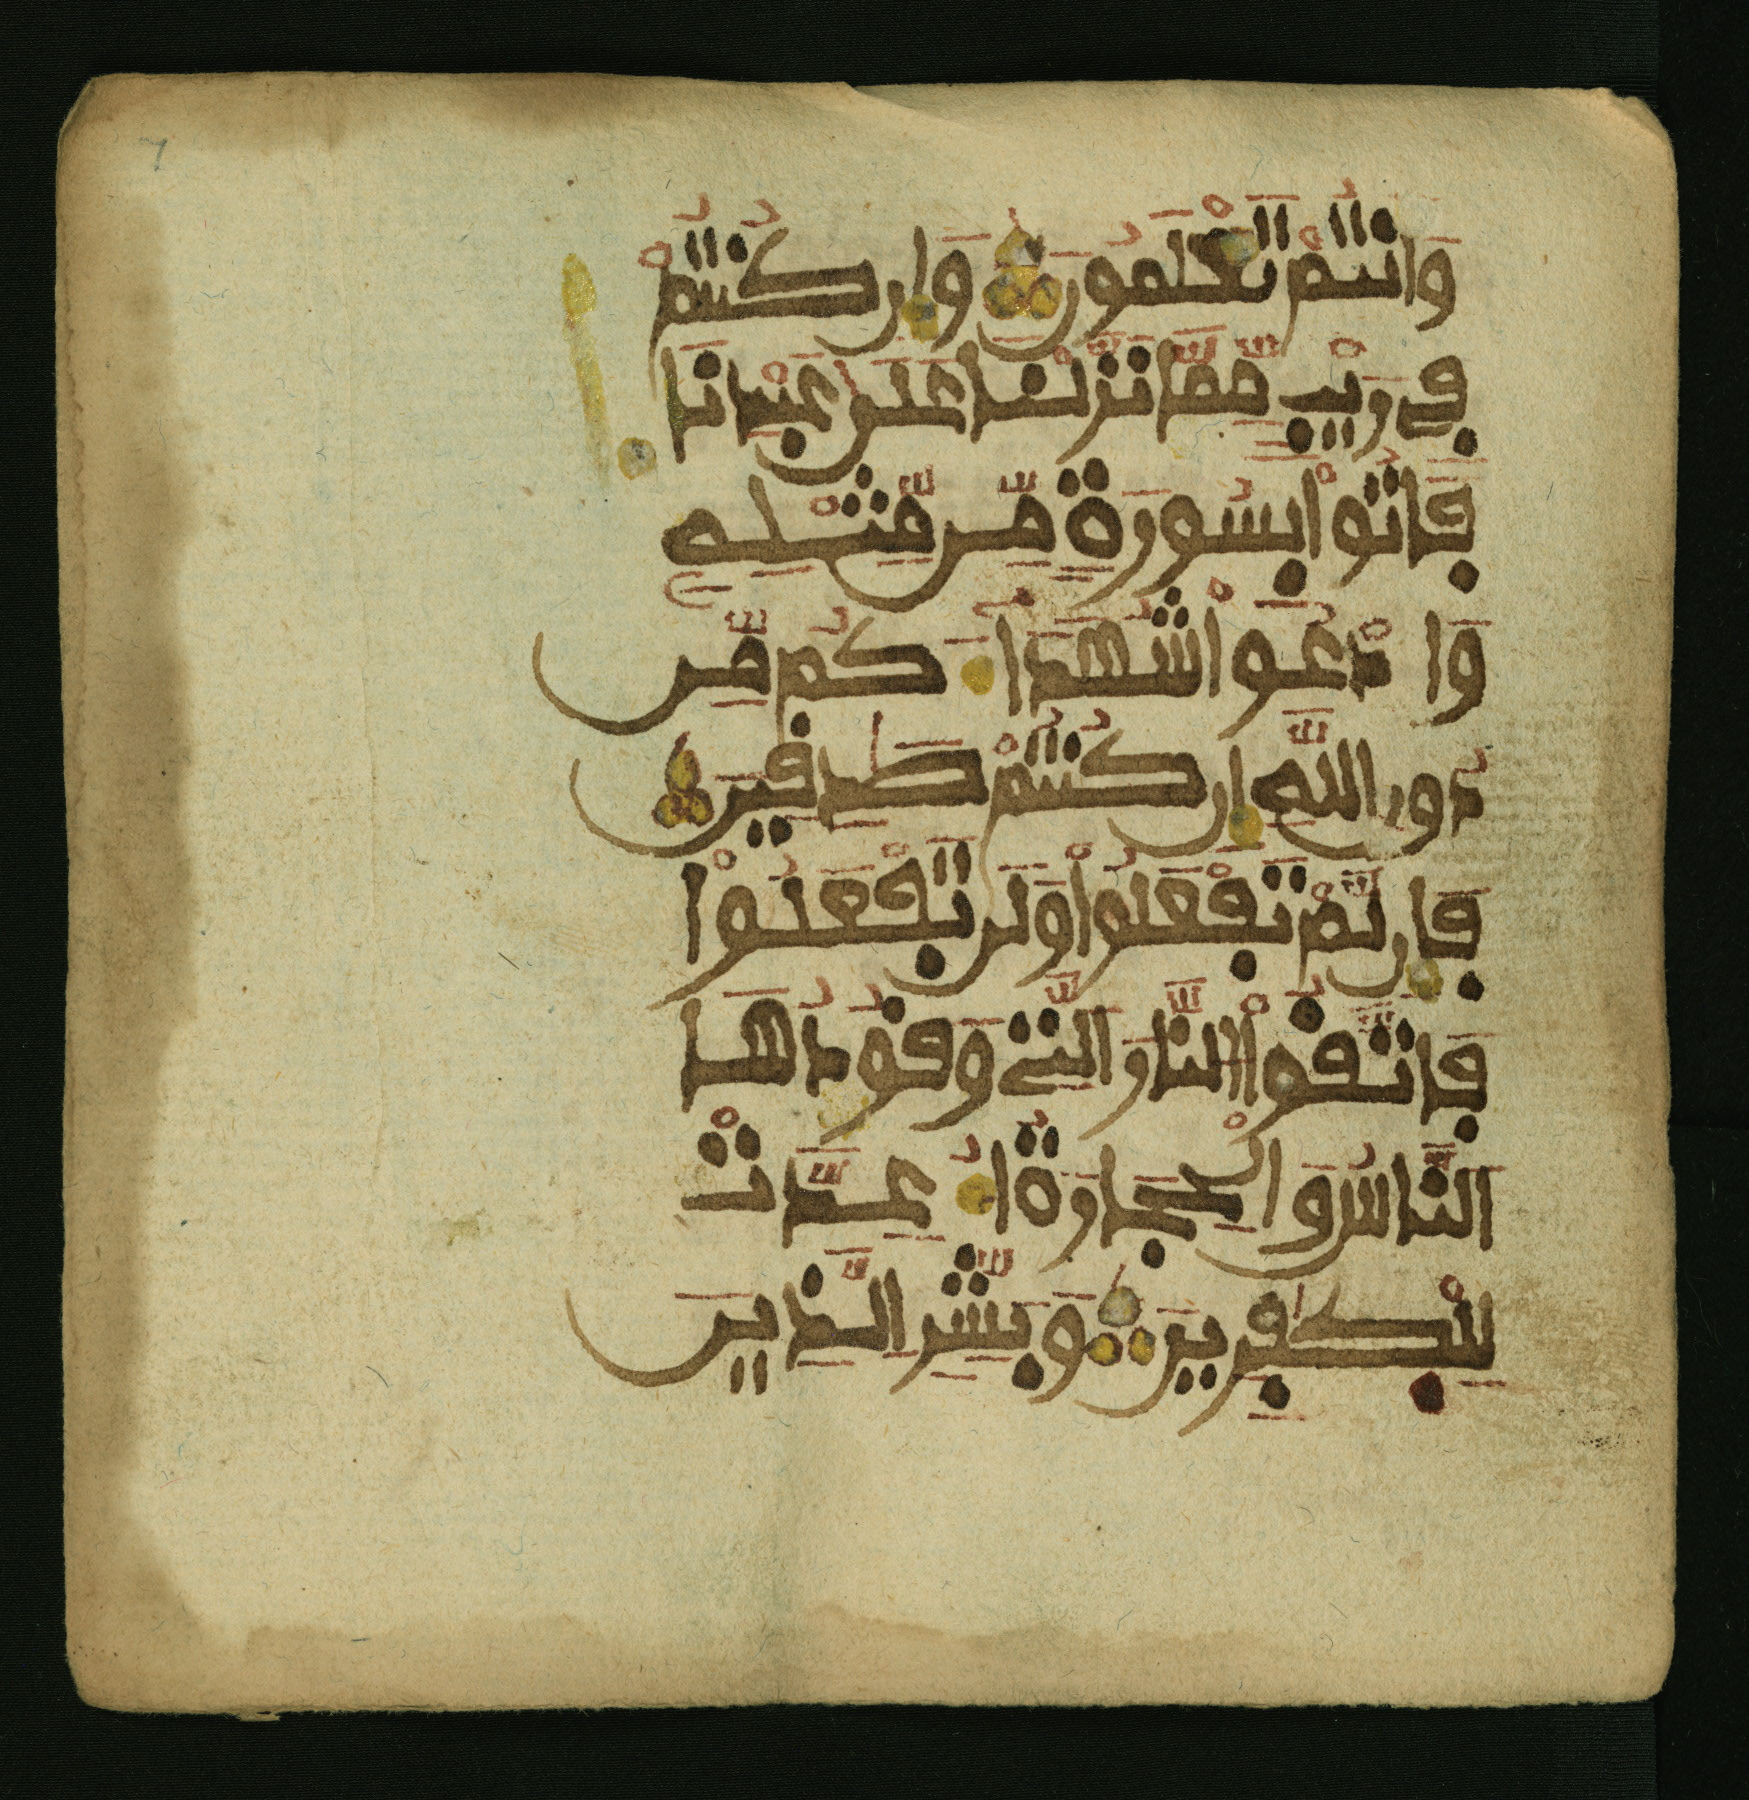 7
وَاَنتُمْ تَعْلَمُونَ وَإِن كُنتُمْ
فِي رَيْبٍ مِّمَّا نَزَّلْنَا عَلَىٰ عَبْدِنَا
فَاتُوا۟ بِسُورَةٍ مِّن مِّثْلِهِ
وَادْعُوا۟ شُهَدَآءَكُم مِّن
دُونِ اللَّهِ إِن كُنتُمْ صَٰدِقِينَ
فَإِن لَّمْ تَفْعَلُوا۟ وَلَن تَفْعَلُوا۟
فَاتَّقُوا۟ النَّارَ الَّتِي وَقُودُهَا
النَّاسُ وَالْحِجَارَةُ أُعِدَّتْ
لِلْكَٰفِرِينَ وَبَشِّرِ الَّذِينَ